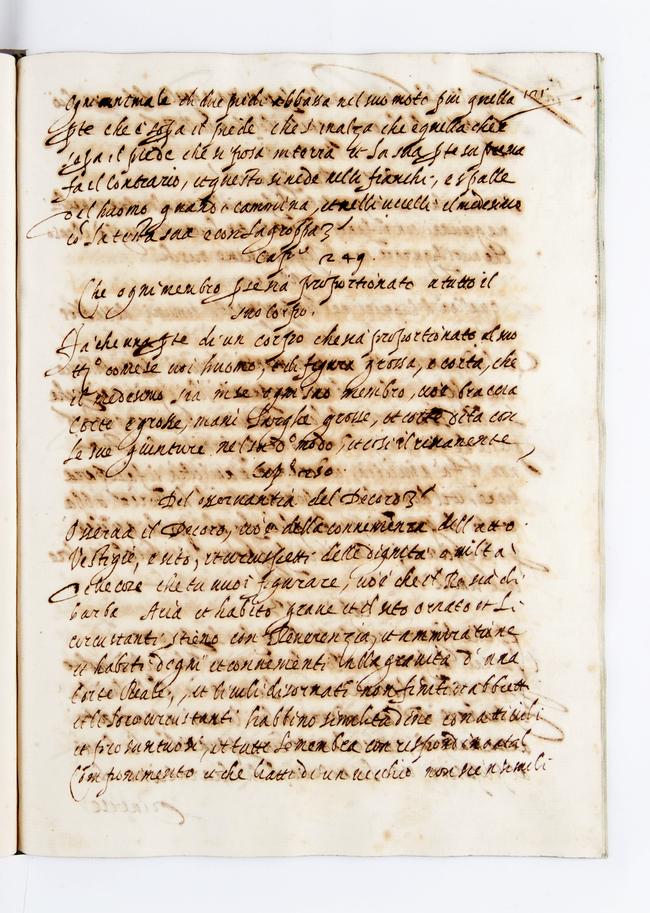 Ogni animale di due piedi abbassa nel suo moto piu quella 121
pte che è sopra il piede che s'inalza che quella che è
sopra il piede che si posa in terra et la sua pte suprema
fa il contrario, et questo si uede nelli fianchi, e spalle
del huomo quando cammina, et nelli uccelli il medesimo
co la testa sua e con la groppa
Cap.º 249.
Che ogni membro p se sia proportionato a tutto il
suo corpo.
Fa che una pte di un corpo sia proportionato al suo
tt.º come se un huomo, è di figura grossa, e corta, che
il medesimo sia in se ogni suo membro, cioè braccia
corte e grosse, mani larghe grosse, et corte dita con
le sue giunture nel s.º d.º modo, et cosi il rimanente
Cap.º 250.
Del osseruantia del Decoro
Osserua il Decoro, cioè della conuenienza dell atto
Vestigie, e sito, et circuspetti delle dignita o uilta
delle cose che tu uuoi figurare, cioè che il Re sia di
barba Aria et habito graue et il sito ornato et li
circustanti stieno con Reuerenzia, et ammiratione
et habiti degni et conuenienti alla grauita d' una
corte Reale, et li uili disornati non finiti et abbietti
et le loro circustanti habbino similitudine con atti uili
et presuntuosi, et tutte le membra correspondino a tal
Componimento et che li atti di un uecchio non sien simili